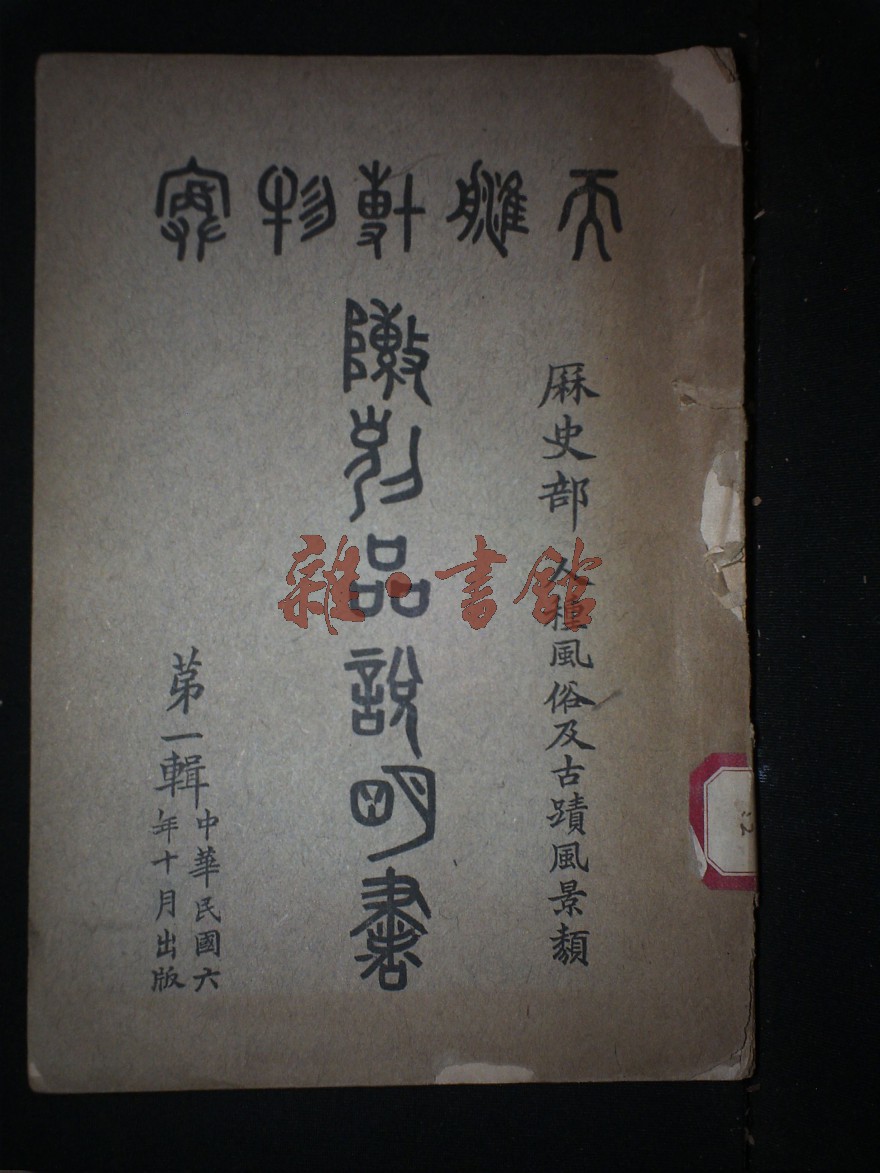 天津博物院
厤史部 人種風俗及古蹟風景類
陳列品說明書
第一輯
中華民國六
年十月出版
雜·書館